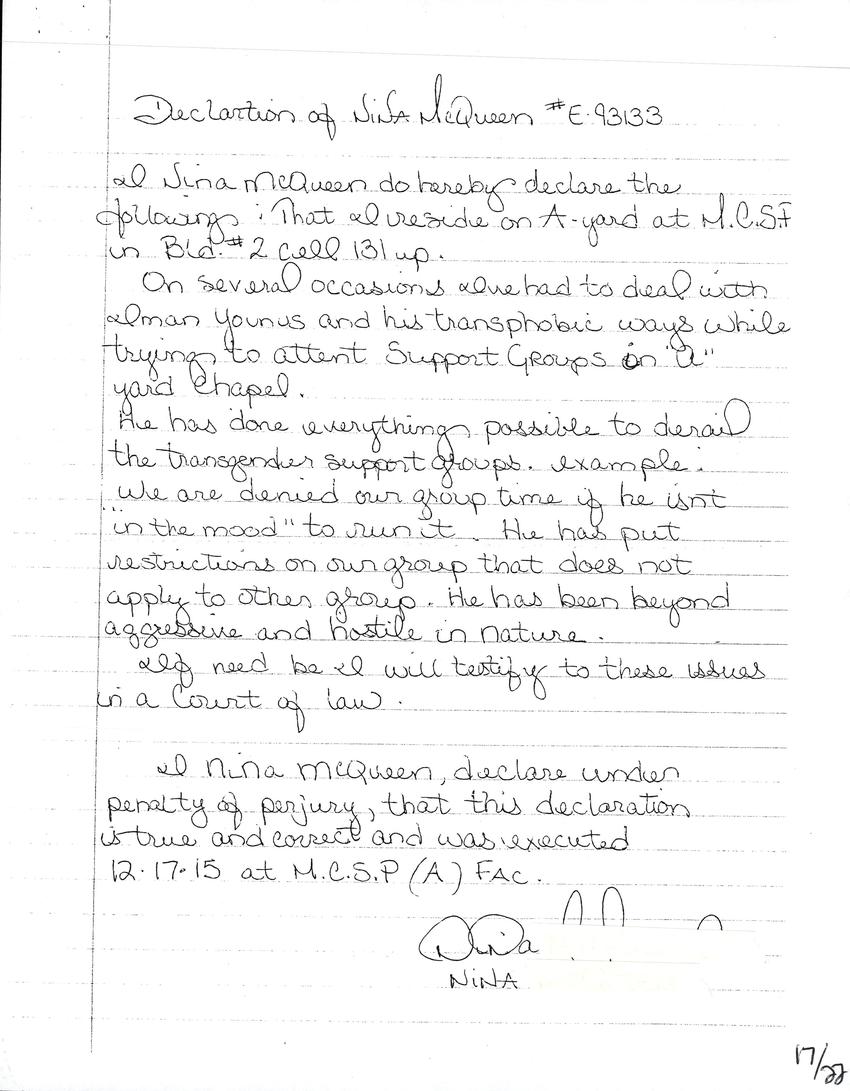 Declartion of NiNA McQueen #E-93133
I Nina McQueen do hereby declare the
following: That I reside on A-yard at M.C.S.P
in Bld.#2 cell 131 up.
On several occasions I've had to deal with
Iman Younus and his transphobic ways while
trying to attent Support Groups on "A"
yard Chapel.
He has done everything possible to derail
the transgender support groups. example:
We are denied our group time if he isnt
"in the mood" to run it. He has put
restrictions on our group that does not
apply to other group. He has been beyond
aggressive and hostile in nature.
If need be I will testify to these issues
in a Court of law.
I Nina McQueen, declare under
penalty of perjury, that this declaration
is true and correct and was executed
12-17-15 at M.C.S.P (A) FAC.
Nina
NiNA
17/22